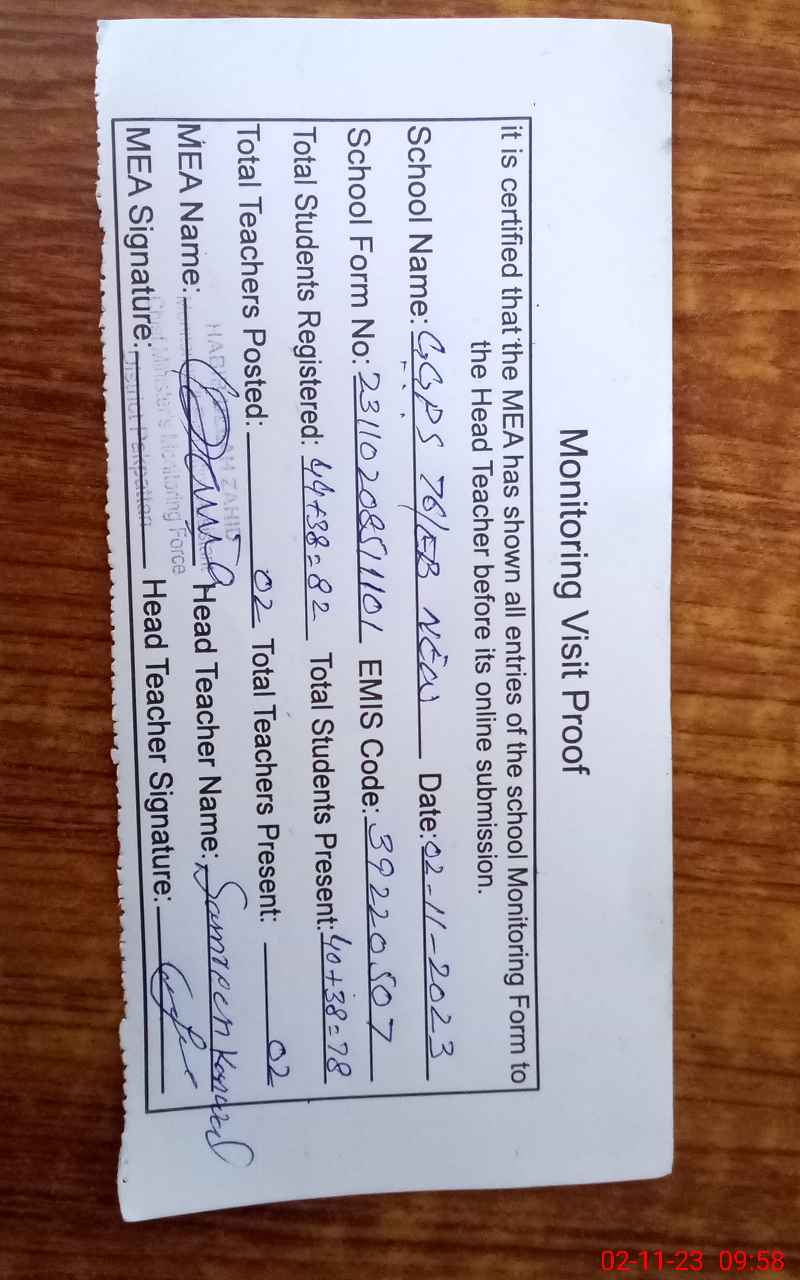 Monitoring Visit Proof
it is certified that the MEA has shown all entries of the school Monitoring Form to
the Head Teacher before its online submission.
School Name: GGPS 76/EB NEW Date: 02-11-2023
School Form No: 23110208511101 EMIS Code: 39220507
Total Students Registered: 44+38=82 Total Students Present: 40+38=78
Total Teachers Posted: 02 Total Teachers Present: 02
MEA Name: Head Teacher Name: Samreen Kanwal
MEA Signature: Head Teacher Signature:
ZAHID
Chief Minister's Monitoring Force
District Pakpattan
02-11-23 09:58